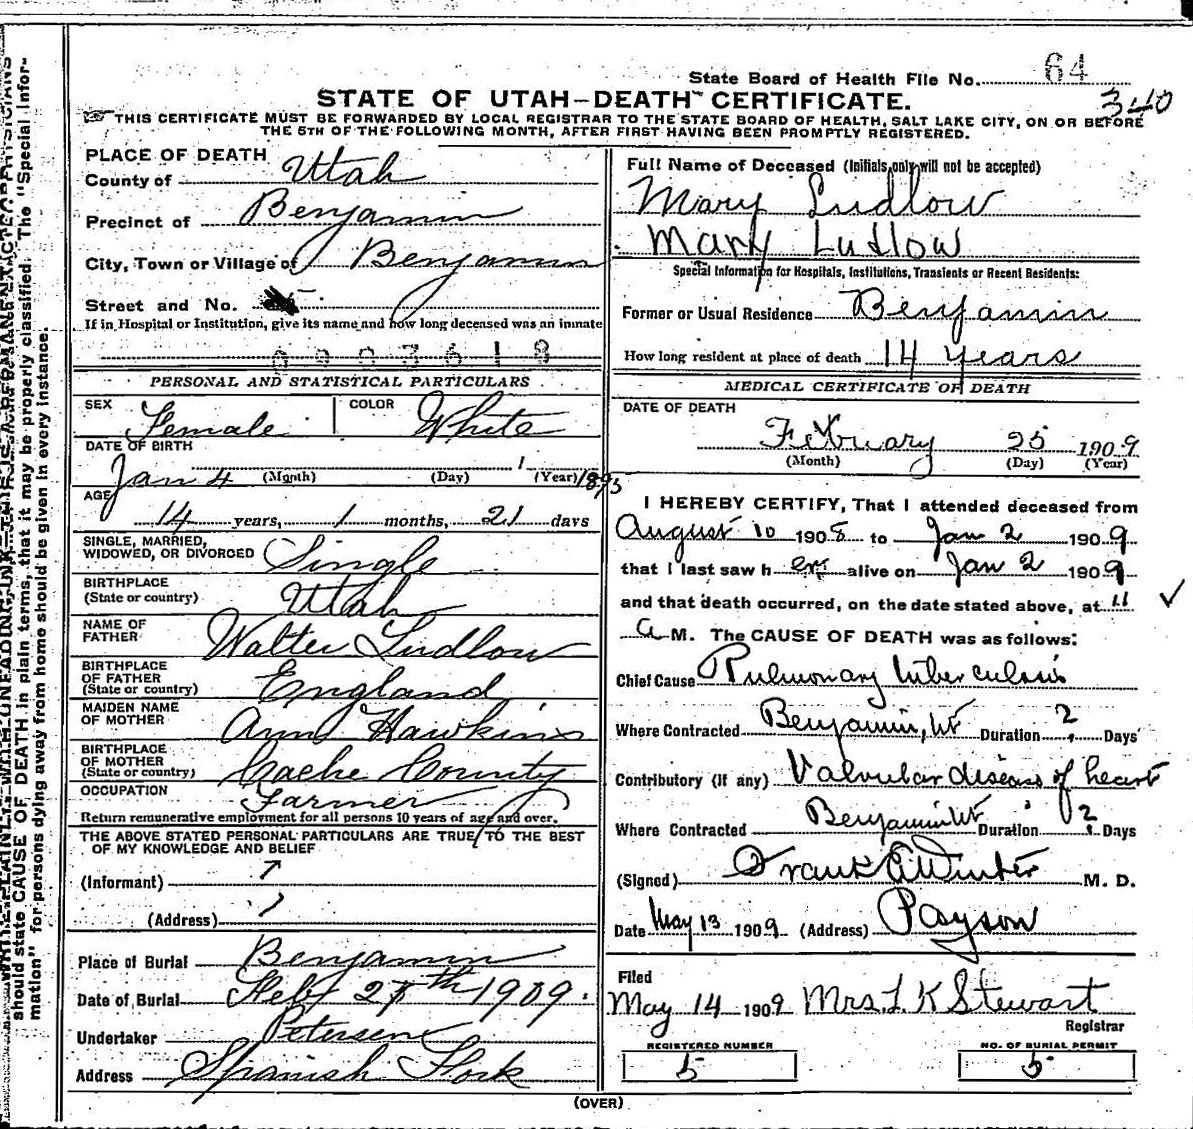 State Board of Health File No. 64
340
STATE OF UTAH—DEATH CERTIFICATE.
THIS CERTIFICATE MUST BE FORWARDED BY LOCAL REGISTRAR TO THE STATE BOARD OF HEALTH, SALT LAKE CITY, ON OR BEFORE
THE 5TH OF THE FOLLOWING MONTH, AFTER FIRST HAVING BEEN PROMPTLY REGISTERED.
PLACE OF DEATH
County of Utah
Precinct of Benjamin
City, Town or Village of Benjamin
Street and No.
If in Hospital or Institution, give its name and how long deceased was an inmate
0003618
PERSONAL AND STATISTICAL PARTICULARS
SEX Female COLOR White
DATE OF BIRTH
Jan 4 (Month) (Day) (Year) 1895
AGE
14 years, 1 months, 21 days
SINGLE, MARRIED,
WIDOWED, OR DIVORCED Single
BIRTHPLACE
(State or country) Utah
NAME OF
FATHER Walter Ludlow
BIRTHPLACE
OF FATHER
(State or country) England
MAIDEN NAME
OF MOTHER Ann Hawkins
BIRTHPLACE
OF MOTHER
(State or country) Cache County
OCCUPATION Farmer
Return remunerative employment for all persons 10 years of age and over.
THE ABOVE STATED PERSONAL PARTICULARS ARE TRUE TO THE BEST
OF MY KNOWLEDGE AND BELIEF
(Informant)
(Address)
Place of Burial Benjamin
Date of Burial Feb 27th 1909.
Undertaker Petersen
Address Spanish Fork
Full Name of Deceased (Initials only will not be accepted)
Mary Ludlow
Mary Ludlow
Special Information for Hospitals, Institutions, Transients or Recent Residents:
Former or Usual Residence Benjamin
How long resident at place of death 14 years
MEDICAL CERTIFICATE OF DEATH
DATE OF DEATH
February 25 1909
(Month) (Day) (Year)
I HEREBY CERTIFY, That I attended deceased from
August 10 1908 to Jan 2 1909
that I last saw her alive on Jan 2 1909
and that death occurred, on the date stated above, at 11
A M. The CAUSE OF DEATH was as follows:
Chief Cause Pulmonary tuberculosis
Where Contracted Benjamin, Ut Duration ? Days
Contributory (if any) Valvular disease of heart
Where Contracted Benjamin Ut Duration ? Days
(Signed) Frank E Winter M. D.
Date May 13 1909 (Address) Payson
Filed
May 14 1909 Mrs. L K Stewart
Registrar
REGISTERED NUMBER NO. OF BURIAL PERMIT
5 5
(OVER)
should state CAUSE OF DEATH in plain terms, that it may be properly classified. The "Special Infor-
mation" for persons dying away from home should be given in every instance.